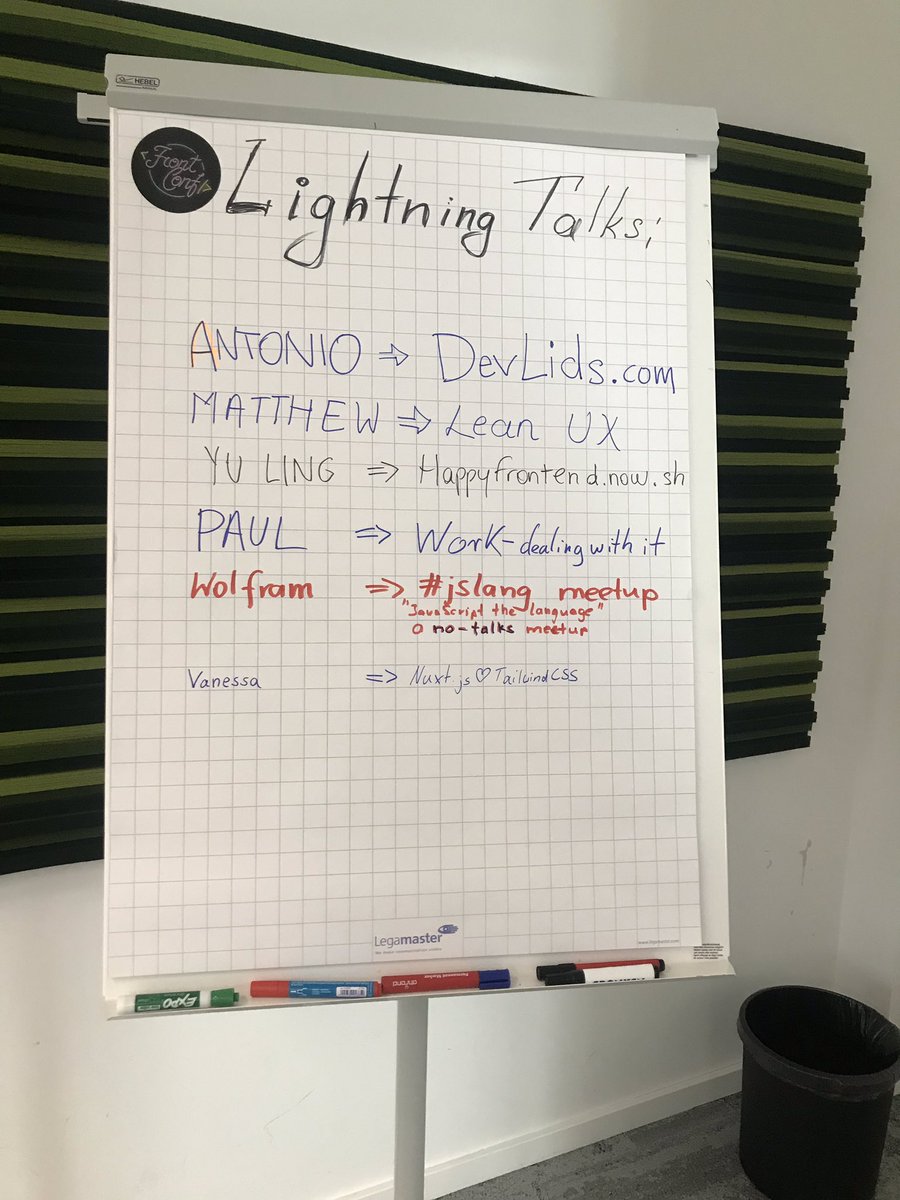 HEBEL
<Front
Conf/>
Lightning Talks;
ANTONIO ⇒ DevLids.com
MATTHEW ⇒ Lean UX
YU LING ⇒ Happyfrontend.now.sh
PAUL ⇒ Work-dealing with it
Wolfram ⇒ #jslang meetup
"JavaScript the language"
a no-talks meetup
Vanessa ⇒ Nuxt.js ♡ TailwindCSS
Legamaster
www.legamaster.com
EXPO
Permanent Marker